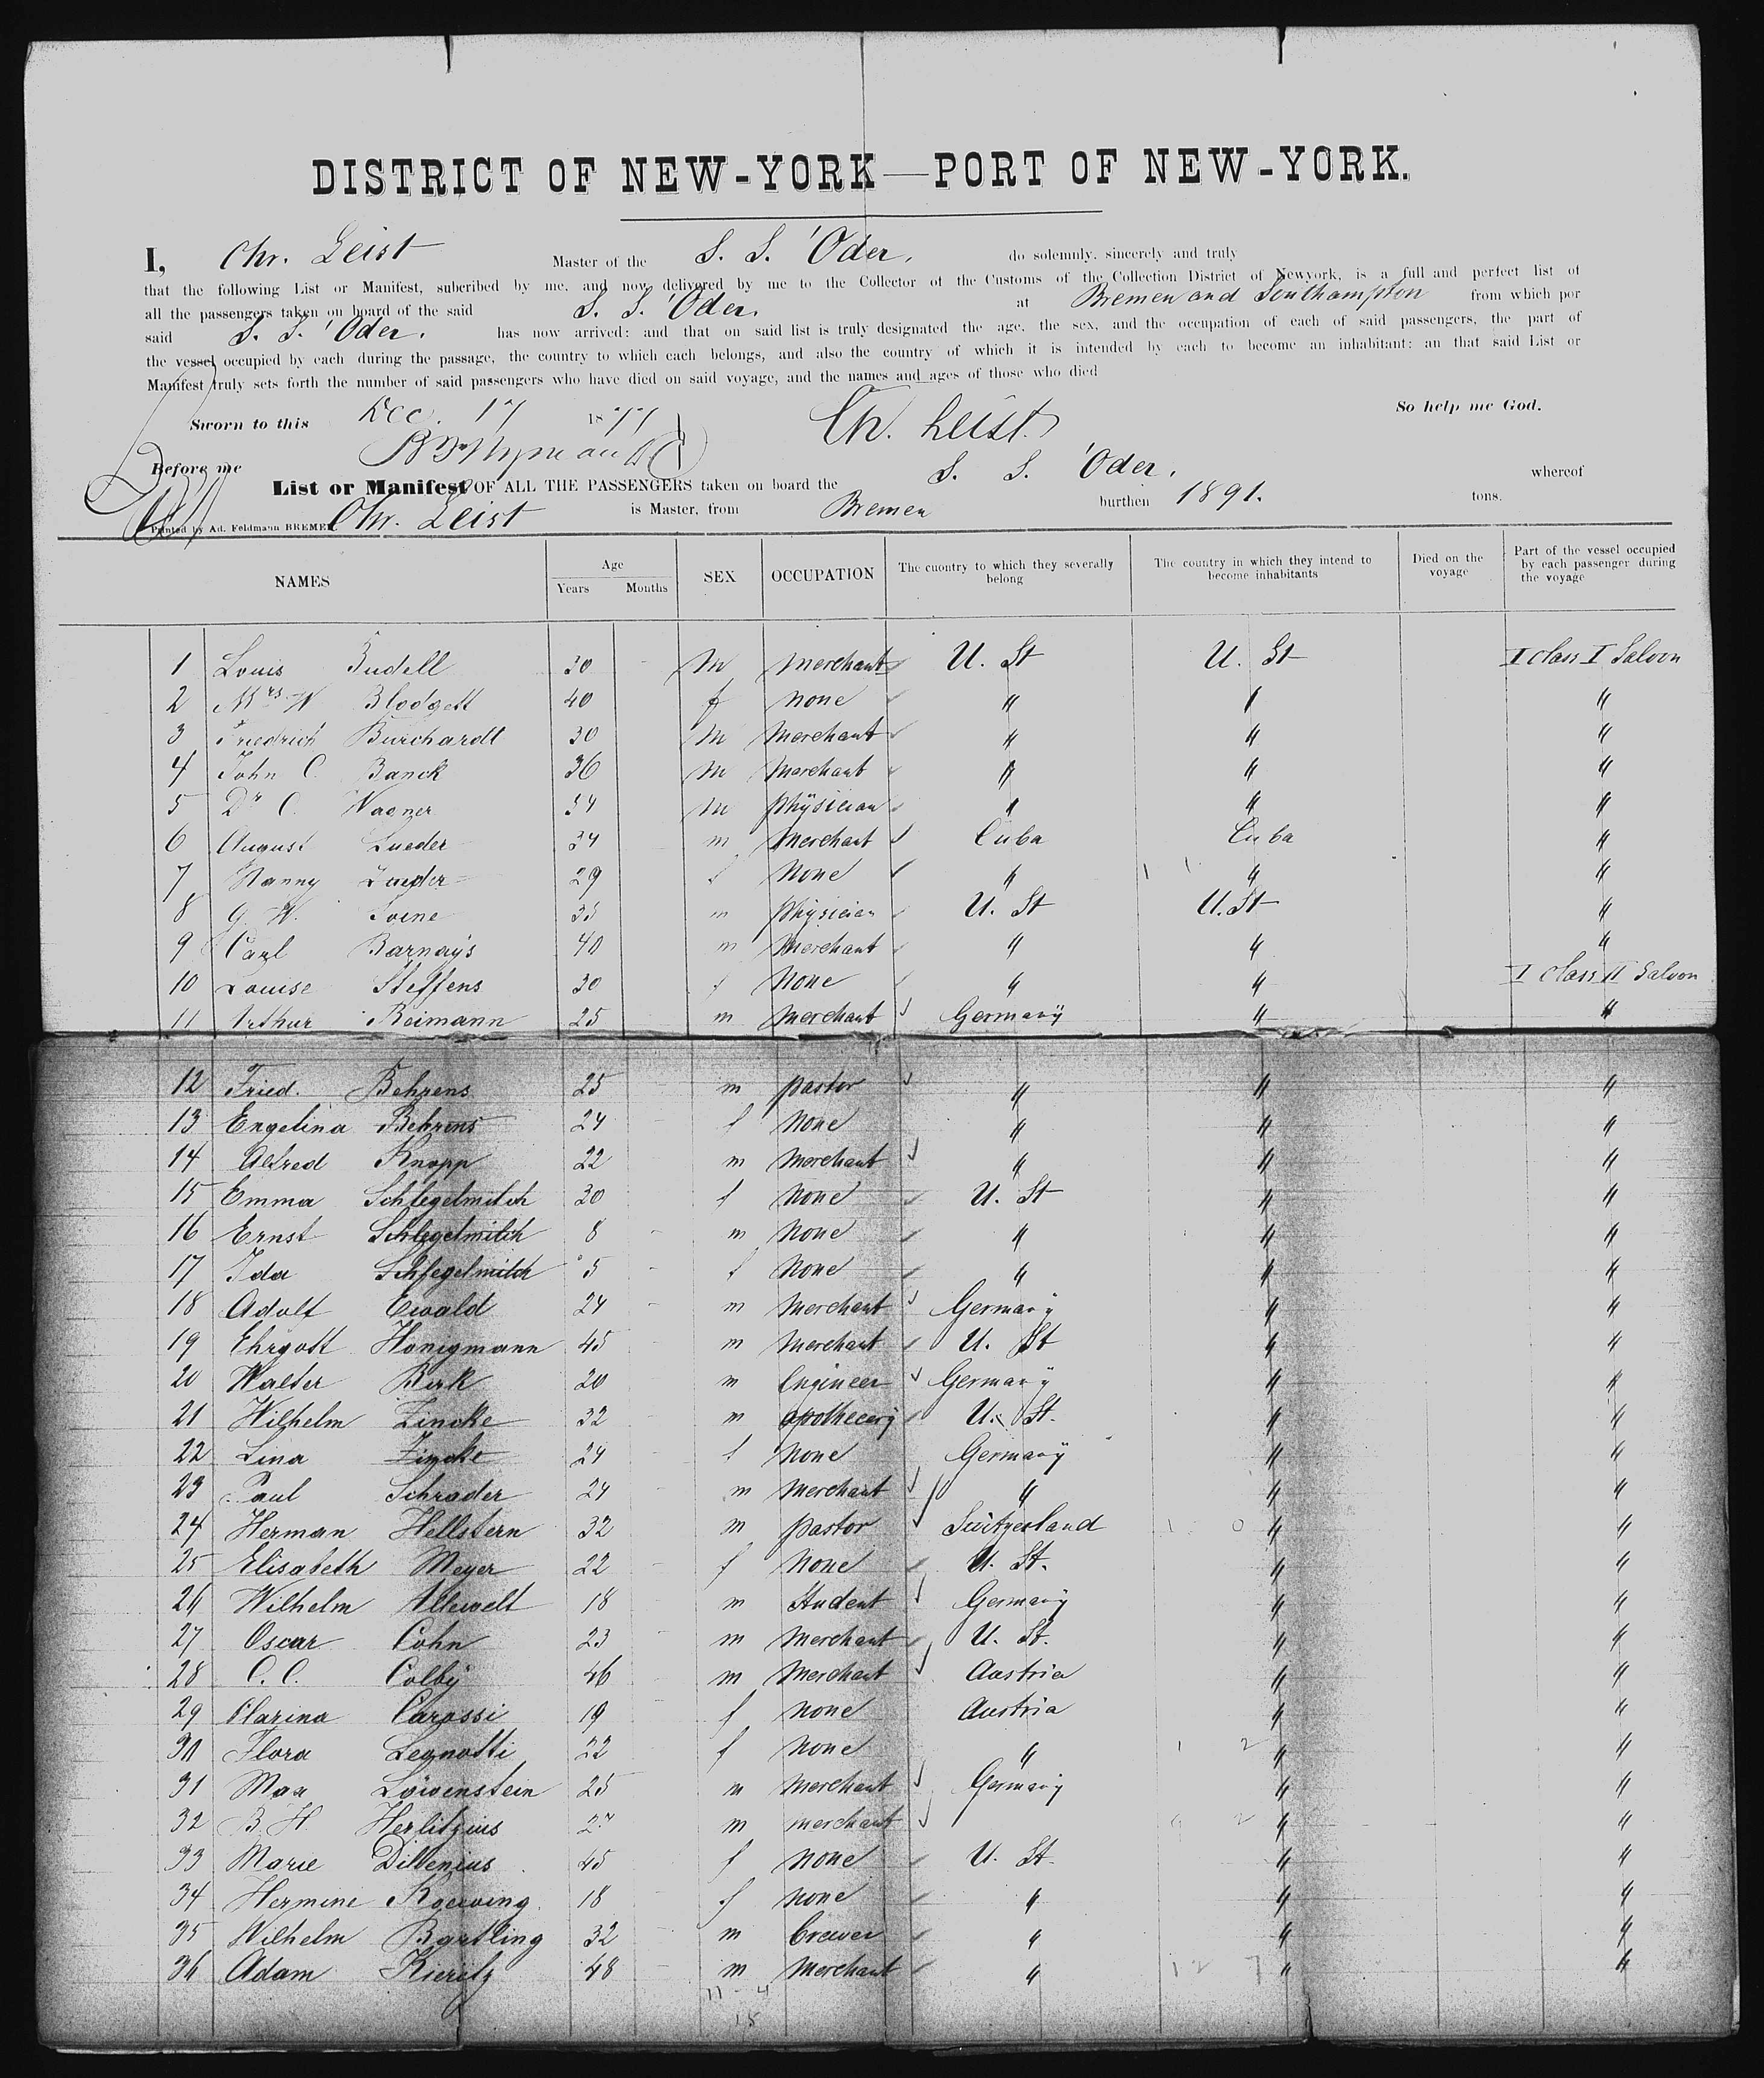 DISTRICT OF NEW-YORK—PORT OF NEW-YORK.
I, Chr. Leist Master of the S. S. 'Oder, do solemnly, sincerely and truly
that the following List or Manifest, subcribed by me, and now delivered by me to the Collector of the Customs of the Collection District of Newyork, is a full and perfect list of
all the passengers taken on board of the said S. S. 'Oder. at Bremen and Southampton from which por
said S. S. 'Oder. has now arrived: and that on said list is truly designated the age, the sex, and the occupation of each of said passengers, the part of
the vessel occupied by each during the passage, the country to which each belongs, and also the country of which it is intended by each to become an inhabitant: an that said List or
Manifest truly sets forth the number of said passengers who have died on said voyage, and the names and ages of those who died
So help me God.
Sworn to this Dec. 17 1877 Ch. Leist.
Before me
List or Manifest OF ALL THE PASSENGERS taken on board the S. S. 'Oder. whereof
Printed by Ad. Feldmann BREMEN Chr. Leist is Master, from Bremen burthen 1891. tons.
NAMES Age Years Months SEX OCCUPATION The cuontry to which they severally belong The country in which they intend to become inhabitants Died on the voyage Part of the vessel occupied by each passenger during the voyage
1 Louis Budell 30 - m merchant U. St U. St I class I Saloon
2 Mrs W Blodgett 40 f none " " "
3 Friedrich Burchardt 30 m Merchant " " "
4 John C. Banck 36 m Merchant " " "
5 Dr C. Wagner 54 m physician " " "
6 August Lueder 34 m Merchant Cuba Cuba "
7 Nanny Lueder 29 f None " " "
8 G. W. 35 m physician U. St U. St "
9 Carl Barnays 40 m Merchant " " "
10 Louise Steffens 30 f None " " I class II Saloon
11 Arthur Reimann 25 m Merchant Germany " "
12 Fried. Behrens 25 m pastor " " "
13 Engelina Behrens 24 f None " " "
14 Alfred Knopp 22 m Merchant " " "
15 Emma Schlegelmilch 30 f None U. St " "
16 Ernst Schlegelmilch 8 - m None " " "
17 Ida Schlegelmilch 5 - f None " " "
18 Adolf Ewald 24 - m Merchant Germany " "
19 Ehrgott Honigmann 45 m Merchant U. St " "
20 Walter Birk 20 m Engineer Germany " "
21 Wilhelm Zincke 32 m apothecery U. St. " "
22 Lina Zincke 24 f None Germany " "
23 Paul Schrader 24 m Merchant " " "
24 Herman Hellstern 32 m pastor Switzerland " "
25 Elisabeth Meyer 22 f None U. St. " "
26 Wilhelm Allewelt 18 m Student Germany " "
27 Oscar Cohn 23 m Merchant U. St. " "
28 C. C. Colby 46 m Merchant Austria " "
29 Clarina Carossi 19 f none Austria " "
30 Flora Legnotti 22 f none " " "
31 Max Löwenstein 25 m Merchant Germany " "
32 B. H. Herlitzius m merchant " "
33 Marie Dillenius 45 f none U. St. " "
34 Hermine 18 f none " " "
35 Wilhelm Bartling 32 m brewer " " "
36 Adam Kieritz 48 m Merchant " " "
11 - 4
15